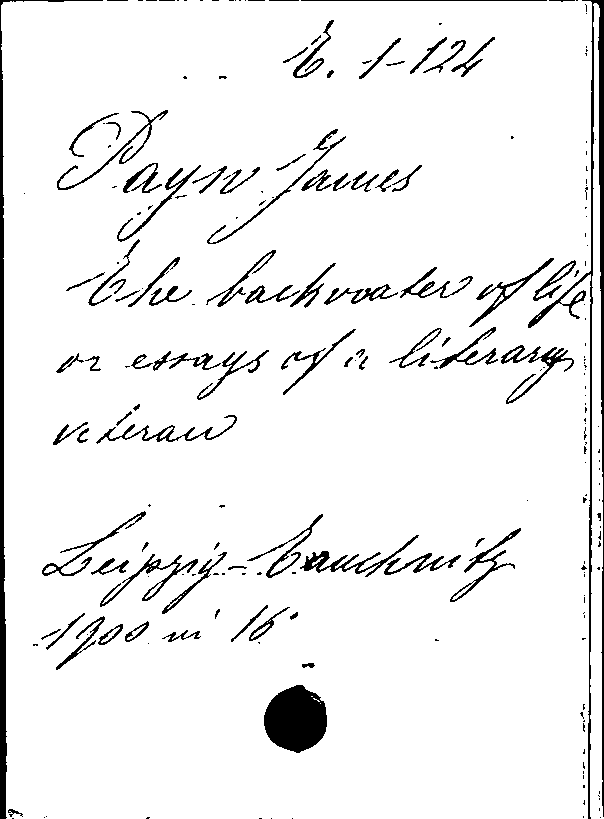 E. 1-124
Payn James
The backwater of life
or essays of a literary
veteran
Leipzig - Tauchnitz
1900 in 16°